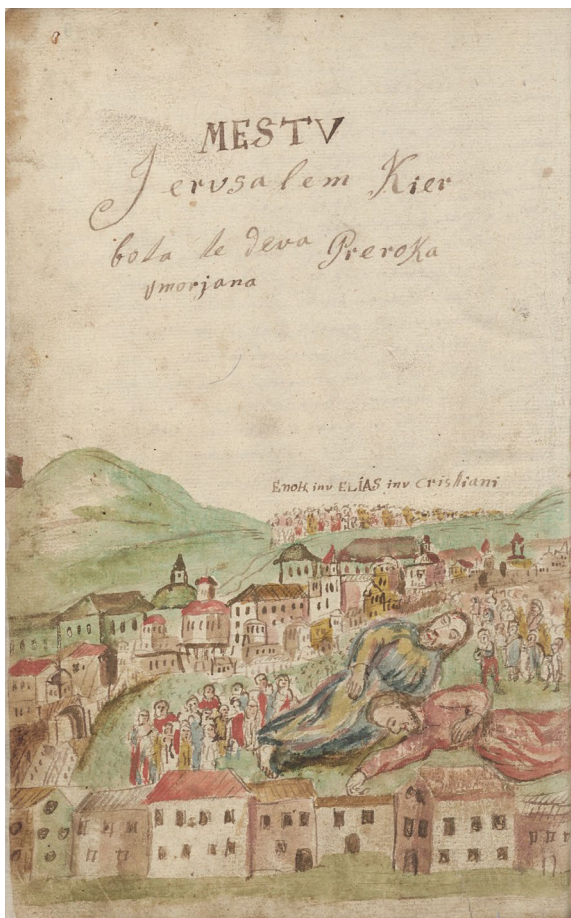 MESTV
Jerusalem Kier
bota te deva Preroka
vmorjana
Enoh inv ELÍAS inv Cristiani